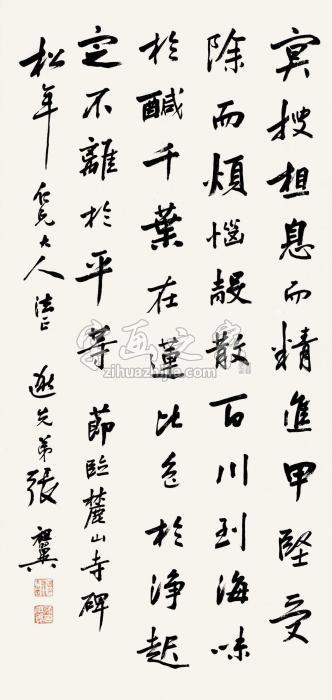 冥搜想息而精進甲堅受
除而煩惱殼散百川到海味
於鹹千葉在蓮比色於淨起
定不離於平等 節臨麓山寺碑
松年仁兄大人法正 逖先弟張祖翼
字画之家
zihuazhijia.com